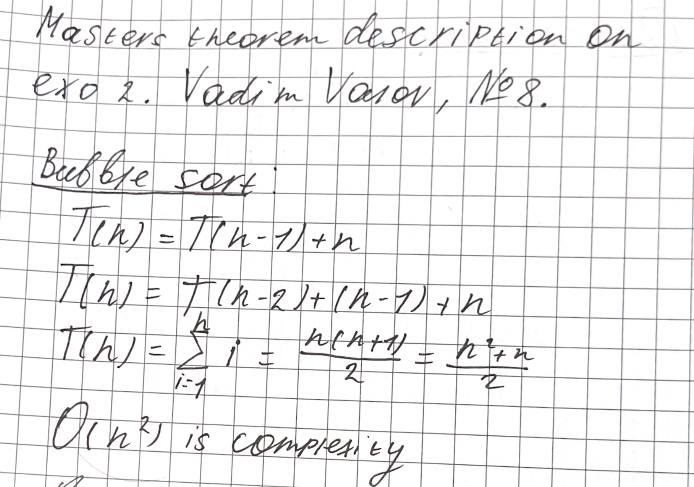 Masters theorem description on
exo 2. Vadim Vasov, №8.
Bubble sort:
T(n) = T(n-1)+n
T(n) = T(n-2)+(n-1)+n
T(n) = ∑_{i=1}^{n} i = n(n+1)/2 = n²+n/2
O(n²) is complexity